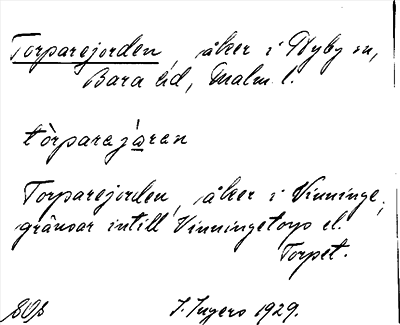 Torparejorden, åker i Hyby sn,
Bara hd, Malm. l.
tòrparejá̱ren
Torparejorden, åker i Vinninge,
gränsar intill Vinningetorp el.
Torpet.
I. Ingers 1929.